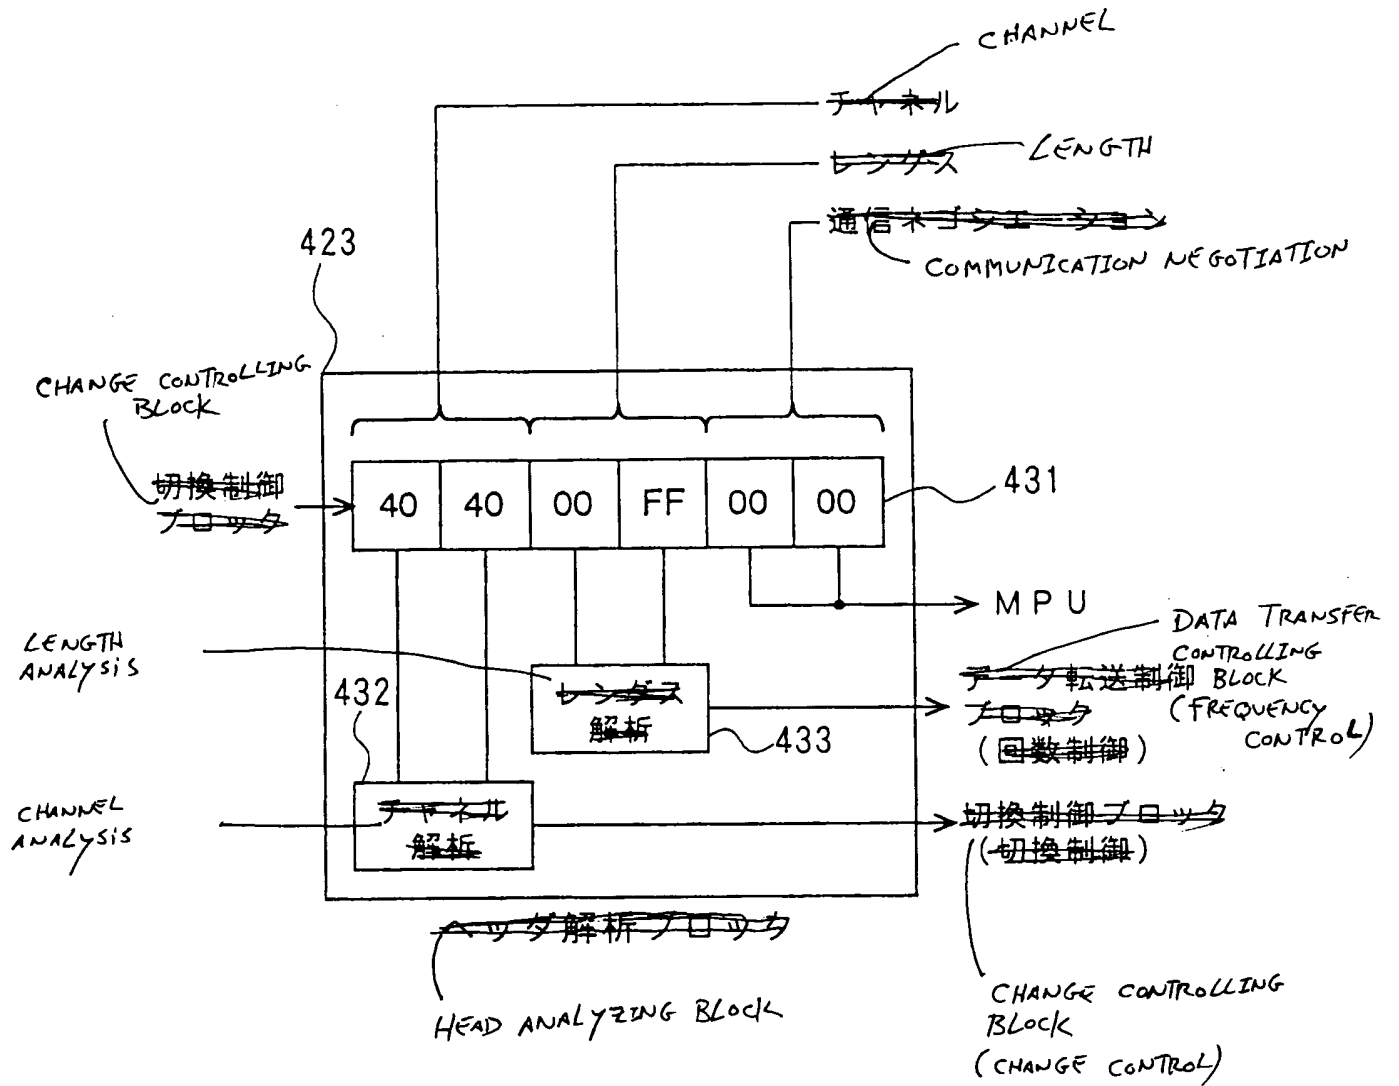 CHANNEL
チャネル
レングス
LENGTH
通信ネゴシエーション
COMMUNICATION NEGOTIATION
423
CHANGE CONTROLLING
BLOCK
切換制御
ブロック
40 40 00 FF 00 00
431
MPU
LENGTH
ANALYSIS
レングス
解析
433
432
DATA TRANSFER
CONTROLLING
BLOCK
(FREQUENCY
CONTROL)
データ転送制御
ブロック
(回数制御)
CHANNEL
ANALYSIS
チャネル
解析
切換制御ブロック
(切換制御)
ヘッダ解析ブロック
HEAD ANALYZING BLOCK
CHANGE CONTROLLING
BLOCK
(CHANGE CONTROL)